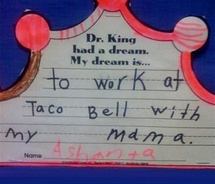 Dr. King
had a dream.
My dream is...
to work at
Taco Bell with
my mama.
Name Ashanta